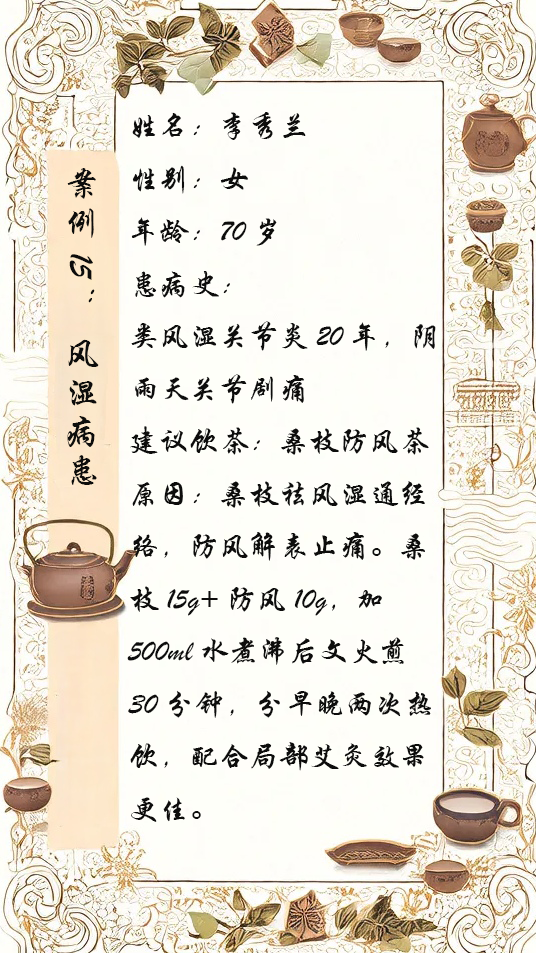 案例 15：风湿病患
姓名：李秀兰
性别：女
年龄：70 岁
患病史：
类风湿关节炎 20 年，阴
雨天关节剧痛
建议饮茶：桑枝防风茶
原因：桑枝祛风湿通经
络，防风解表止痛。桑
枝 15g+ 防风 10g，加
500ml 水煮沸后文火煎
30 分钟，分早晚两次热
饮，配合局部艾灸效果
更佳。